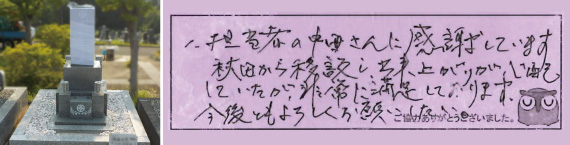 1. 担当者の中田さんに感謝しています
秋田から移設し出来上がりが心配
していたが、非常に満足しております。
今後ともよろしくお願いしたい
ご協力ありがとうございました。